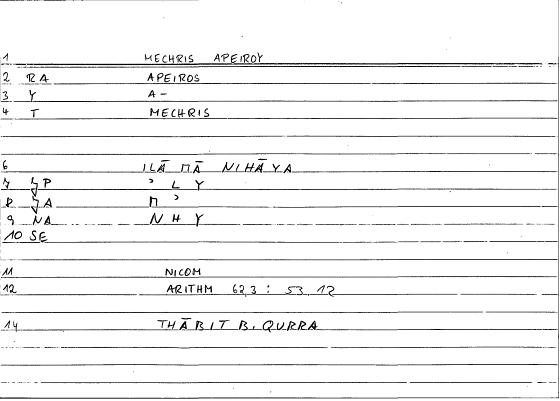 1 MECHRIS APEIROY
2 RA APEIROS
3 Y A-
4 T MECHRIS
6 ILĀ MĀ NIHĀYA
7 P ʾ L Y
8 A M ʾ
9 NA N H Y
10 SE
11 NICOM
12 ARITHM 62,3 : 53,12
14 THĀBIT B. QURRA